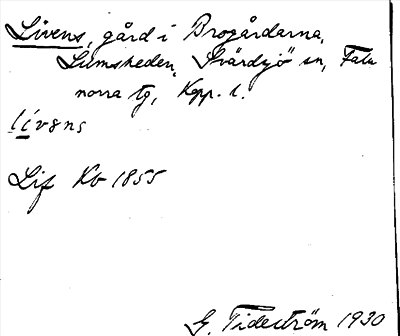 Livens, gård i Brogårdarna,
Lumsheden, Svärdsjö sn, Falu
norra tg, Kopp. l.
livens
Lif Kb 1855
G. Tideström 1930